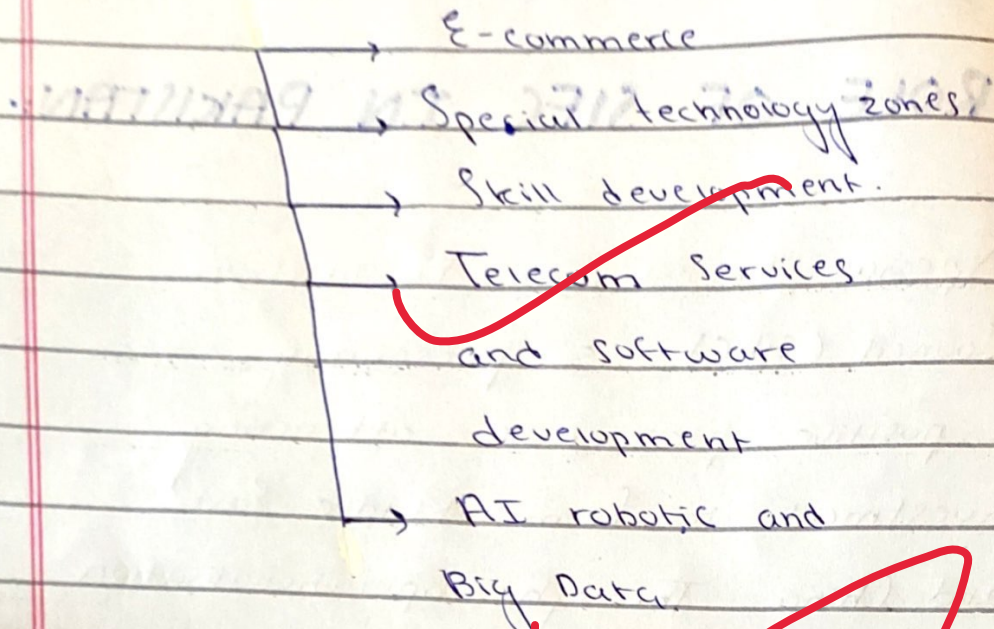 E-commerce
Special technology zones
Skill development.
Telecom Services
and software
development
AI robotic and
Big Data.